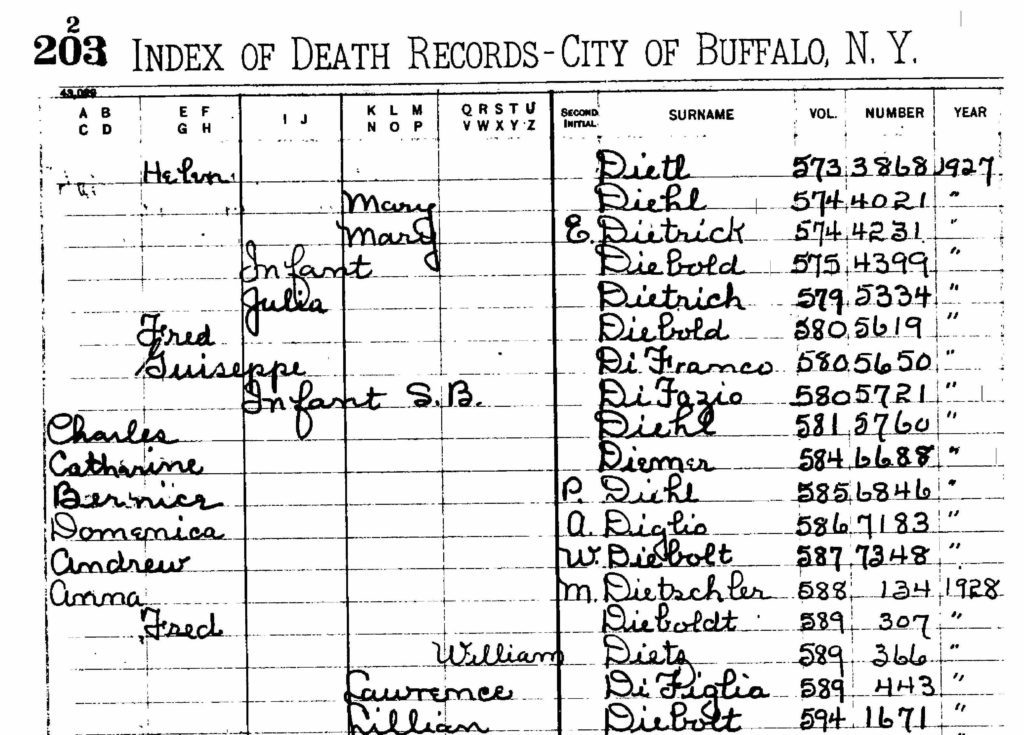 2
203 INDEX OF DEATH RECORDS - CITY OF BUFFALO, N. Y.
43,099
A B C D E F G H I J K L M N O P Q R S T U V W X Y Z SECOND INITIAL SURNAME VOL. NUMBER YEAR
Helen Dietl 573 3868 1927
Mary Diehl 574 4021 "
Mary E. Dietrick 574 4231 "
Infant Diebold 575 4399 "
Julia Dietrich 579 5334 "
Fred Diebold 580 5619 "
Guiseppe Di Franco 580 5650 "
Infant S.B. Di Fazio 580 5721 "
Charles Diehl 581 5760 "
Catharine Diemer 584 6688 "
Bernice P. Diehl 585 6846 "
Domenica A. Diglio 586 7183 "
Andrew W. Diebolt 587 7348 "
Anna M. Dietschler 588 134 1928
Fred Dieboldt 589 307 "
William Dietz 589 366 "
Lawrence Di Figlia 589 443 "
Lillian Diebolt 594 1671 "